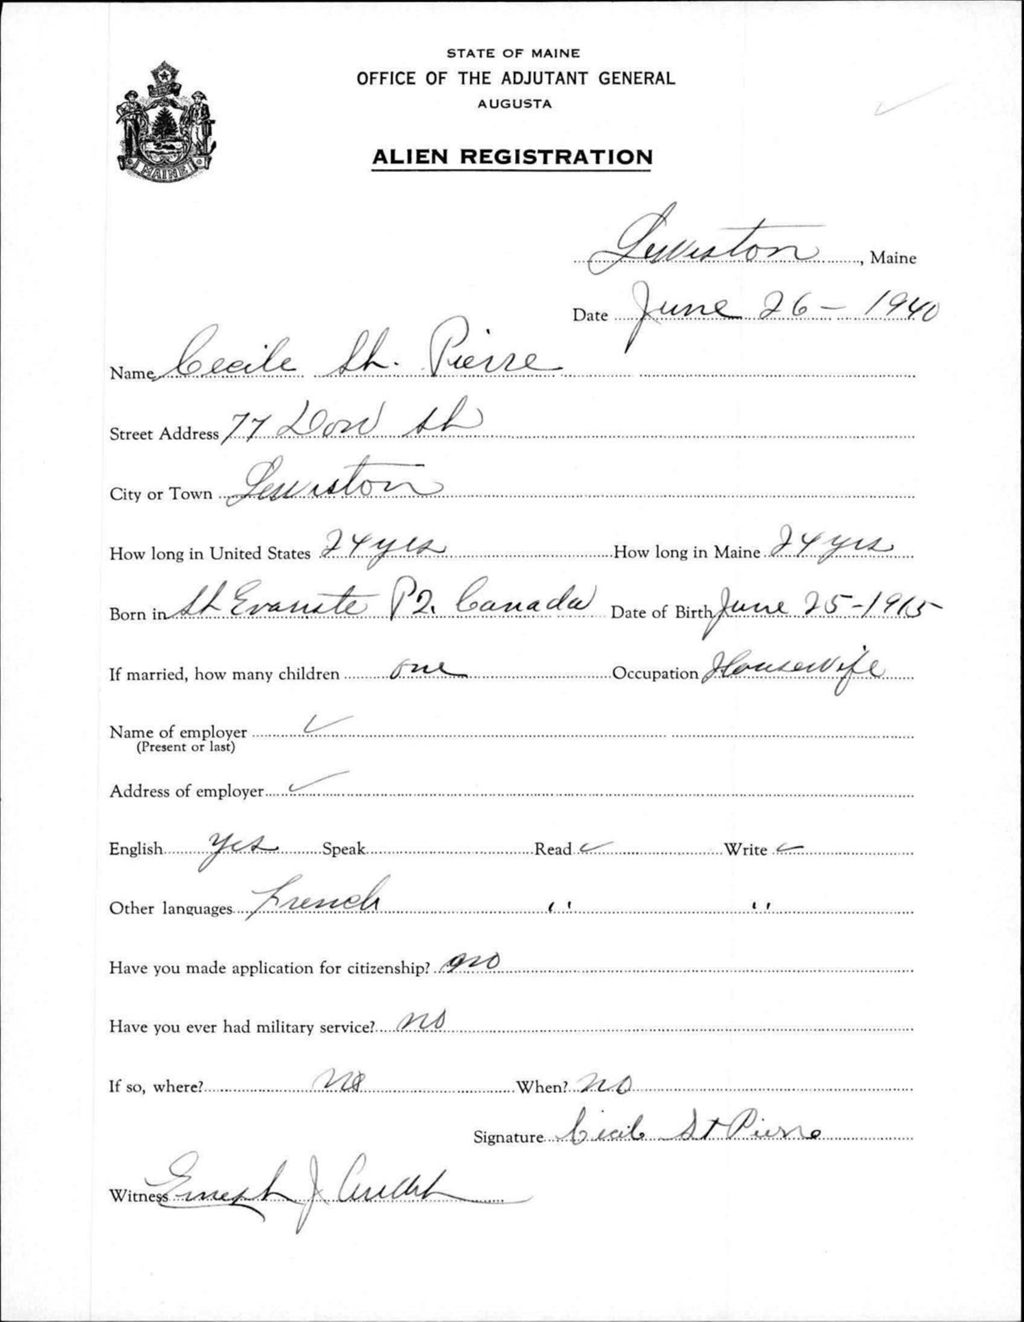 STATE OF MAINE
OFFICE OF THE ADJUTANT GENERAL
AUGUSTA
ALIEN REGISTRATION
MAINE
Lewiston, Maine
Date June 26 - 1940
Name Cecile St. Pierre
Street Address 77 St
City or Town Lewiston
How long in United States 24 yrs How long in Maine 24 yrs
Born in St Evariste P2. Canada Date of Birth June 25-1915
If married, how many children one Occupation Housewife
Name of employer
(Present or last)
Address of employer
English Yes Speak Read Write
Other languages French " "
Have you made application for citizenship? no
Have you ever had military service? no
If so, where? no When? no
Signature Cecile St Pierre
Witness J